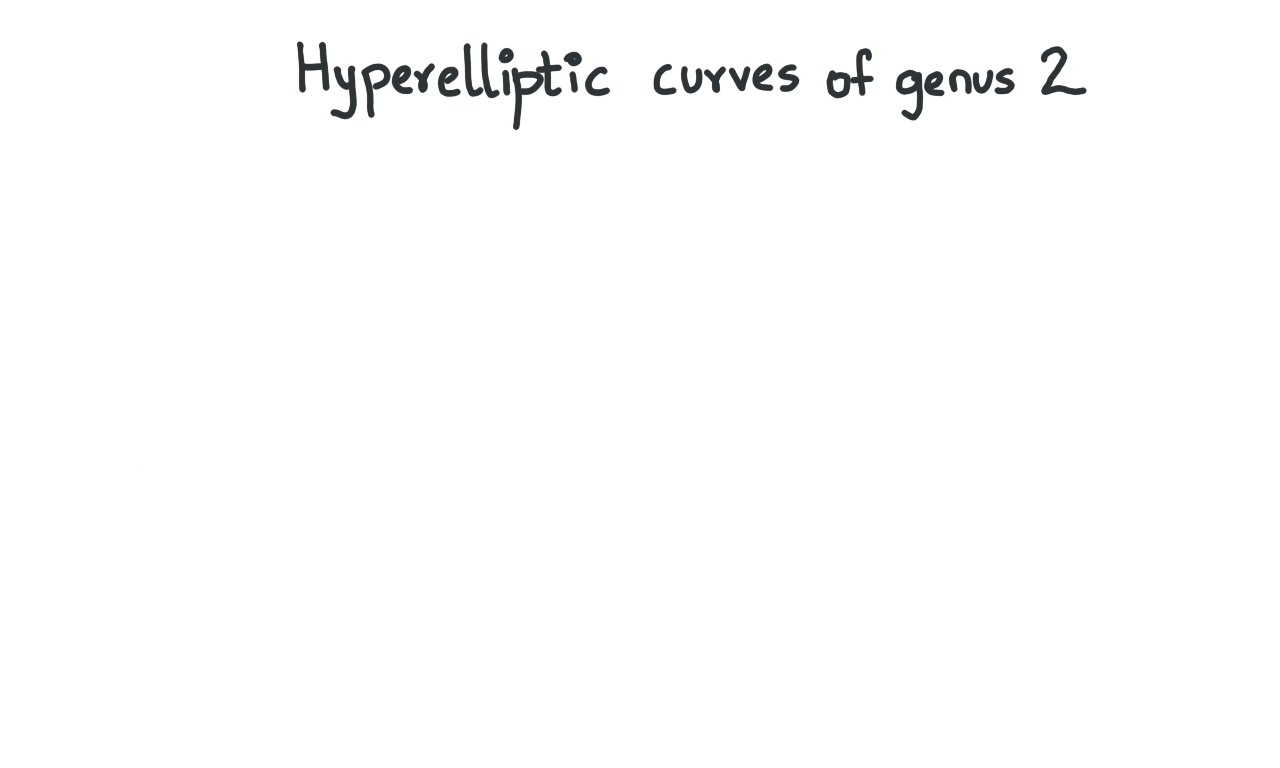 Hyperelliptic curves of genus 2